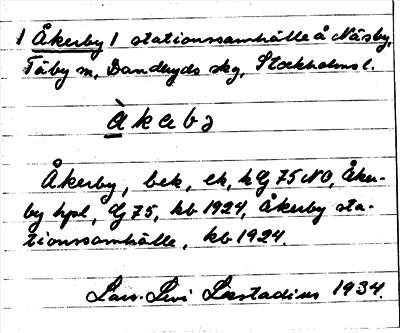 1 Åkerby 1 stationssamhälle å Näsby,
Täby sn, Danderyds skg, Stockholms l.
àkabə
Åkerby, bek, ek, kG 75 NO, Åker-
by hpl, G 75, kb 1924, Åkerby sta-
tionssamhälle, kb 1924.
Lars-Levi Læstadius 1934.